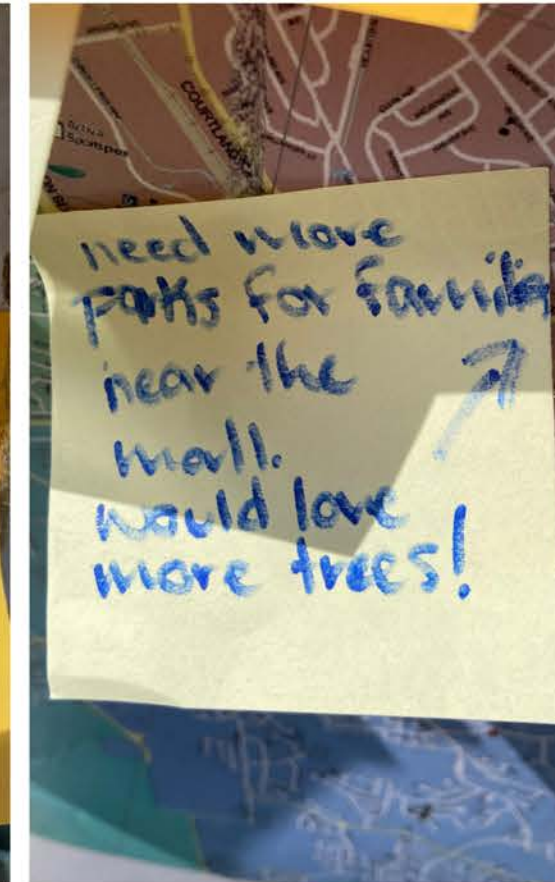 COURTLAND
need more
parks for families
near the
mall.
would love
more trees!